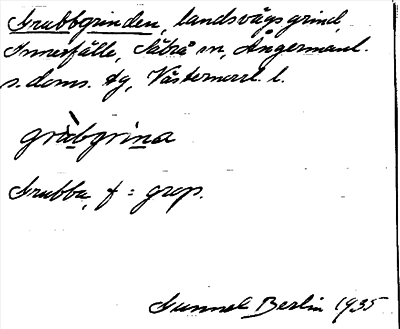 Grubbgrinden, landsvägsgrind,
Innerfälle, Sättrå sn, Ångermanl.
s. doms. tg, Västernorrl. l.
gràbgrina
Grubba, f = grop.
Gunnel Berlin 1935